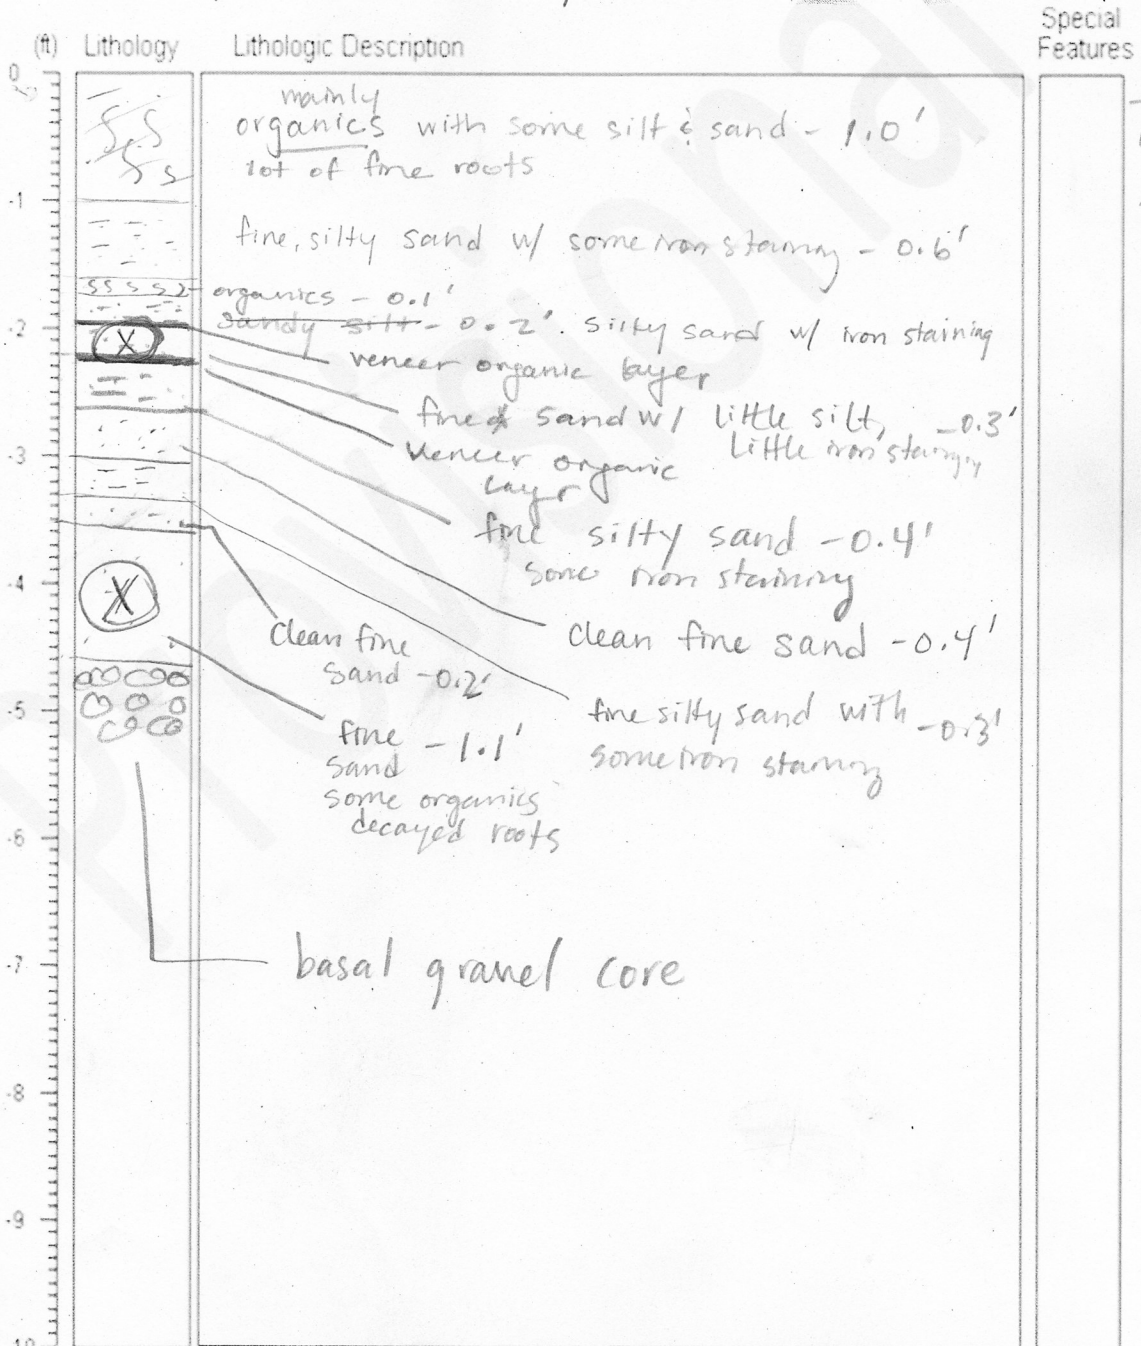 (ft) Lithology Lithologic Description Special Features
0
mainly
organics with some silt & sand - 1.0'
lot of fine roots
-1
fine, silty sand w/ some iron staining - 0.6'
SSSSS
organics - 0.1'
sandy silt - 0.2'. silty sand w/ iron staining
-2
X
veneer organic layer
fine sand w/ little silt, -0.3'
little iron staining
veneer organic
layer
-3
fine silty sand -0.4'
some iron staining
-4
X
clean fine sand -0.4'
Clean fine
sand -0.2'
-5
fine silty sand with -0.3'
some iron staining
fine -1.1'
sand
some organics
decayed roots
-6
-7
basal gravel core
-8
-9
-10
Provisional